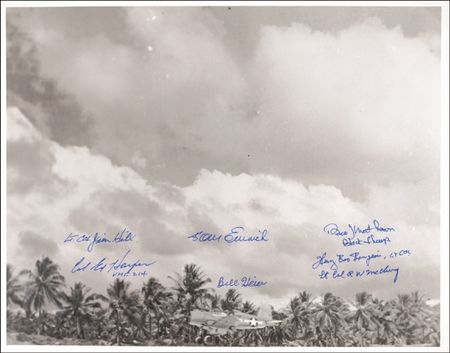 Lt Col Jim Hill
Col Ed Harper
VMF-214
Emrich
Bill Heier
Bruce Matheson
Black Sheep
Henry Boo Bourgeois, Lt Col
Lt Col R W McClurg